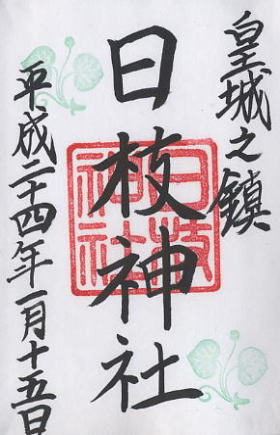 皇城之鎮
日枝神社
日枝神社
平成二十四年一月十五日